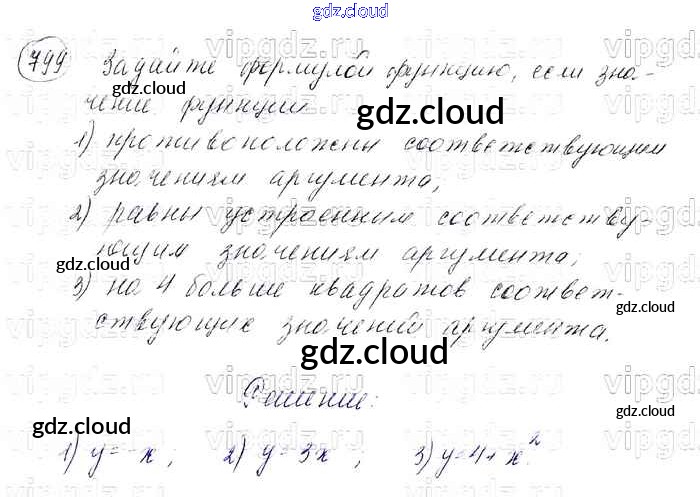 gdz.cloud
799 Задайте формулой функцию, если зна-
чение функции
gdz.cloud
gdz.cloud
1) противоположны соответствующим
значениям аргумента,
2) равны устроенным соответству-
gdz.cloud
ющим значениям аргумента;
gdz.cloud
3) на 4 больше квадратов соответ-
gdz.cloud
ствующих значений аргумента.
gdz.cloud
Решение:
gdz.cloud
gdz.cloud
1) y=-x; 2) y=3x; 3) y=4+x².
gdz.cloud